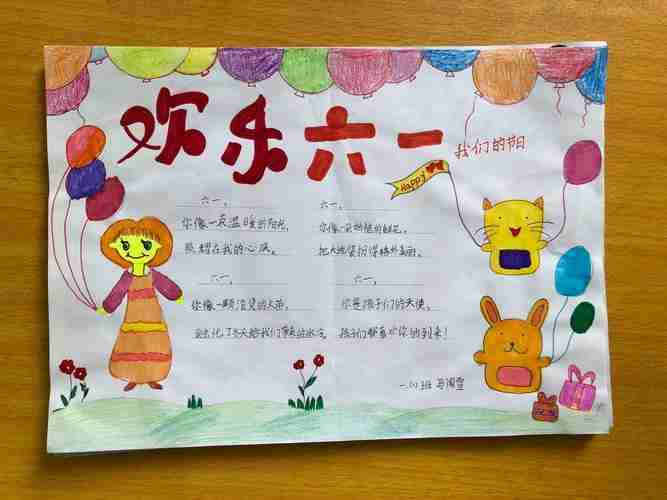 欢乐六一
我们的
Happy
六一，
你像一束温暖的阳光，
照耀在我的心
六一，
你像一朵的鲜花，
把大地装扮得格外美丽。
六一，
你像一颗的火苗，
化了冬天给我们带来的冰冷。
六一，
你是孩子们的天使，
孩子们都喜欢你的到来！
一(1)班